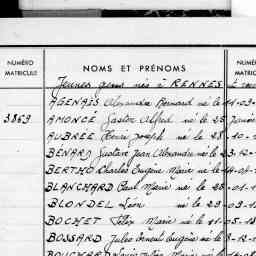 NUMÉRO MATRICULE NOMS ET PRÉNOMS NUMÉRO MATRICULE
Jeunes gens nés à RENNES
AGENAIS Alexandre Bernard né le 11-03-
3853 AMONCE Gaston Alfred né le 25 Janvier
AUBRÉE Henri Joseph né le 28 -10-
BENARD Gustave Jean Alexandre né le 23-12-
BERTHO Charles Eugène Marie né le 14-04-
BLANCHARD Paul Marie né le 26-01-1
BLONDEL Léon né le 29-03-1
BOCHET Félix Marie né le 11-05-18
BOSSARD Jules Ernest Eugène né le 8-12-
BOUCHARD Louis Marie né le